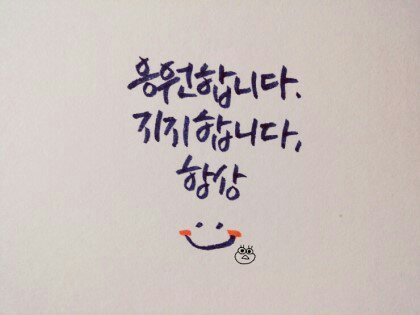 응원합니다.
지지합니다,
항상